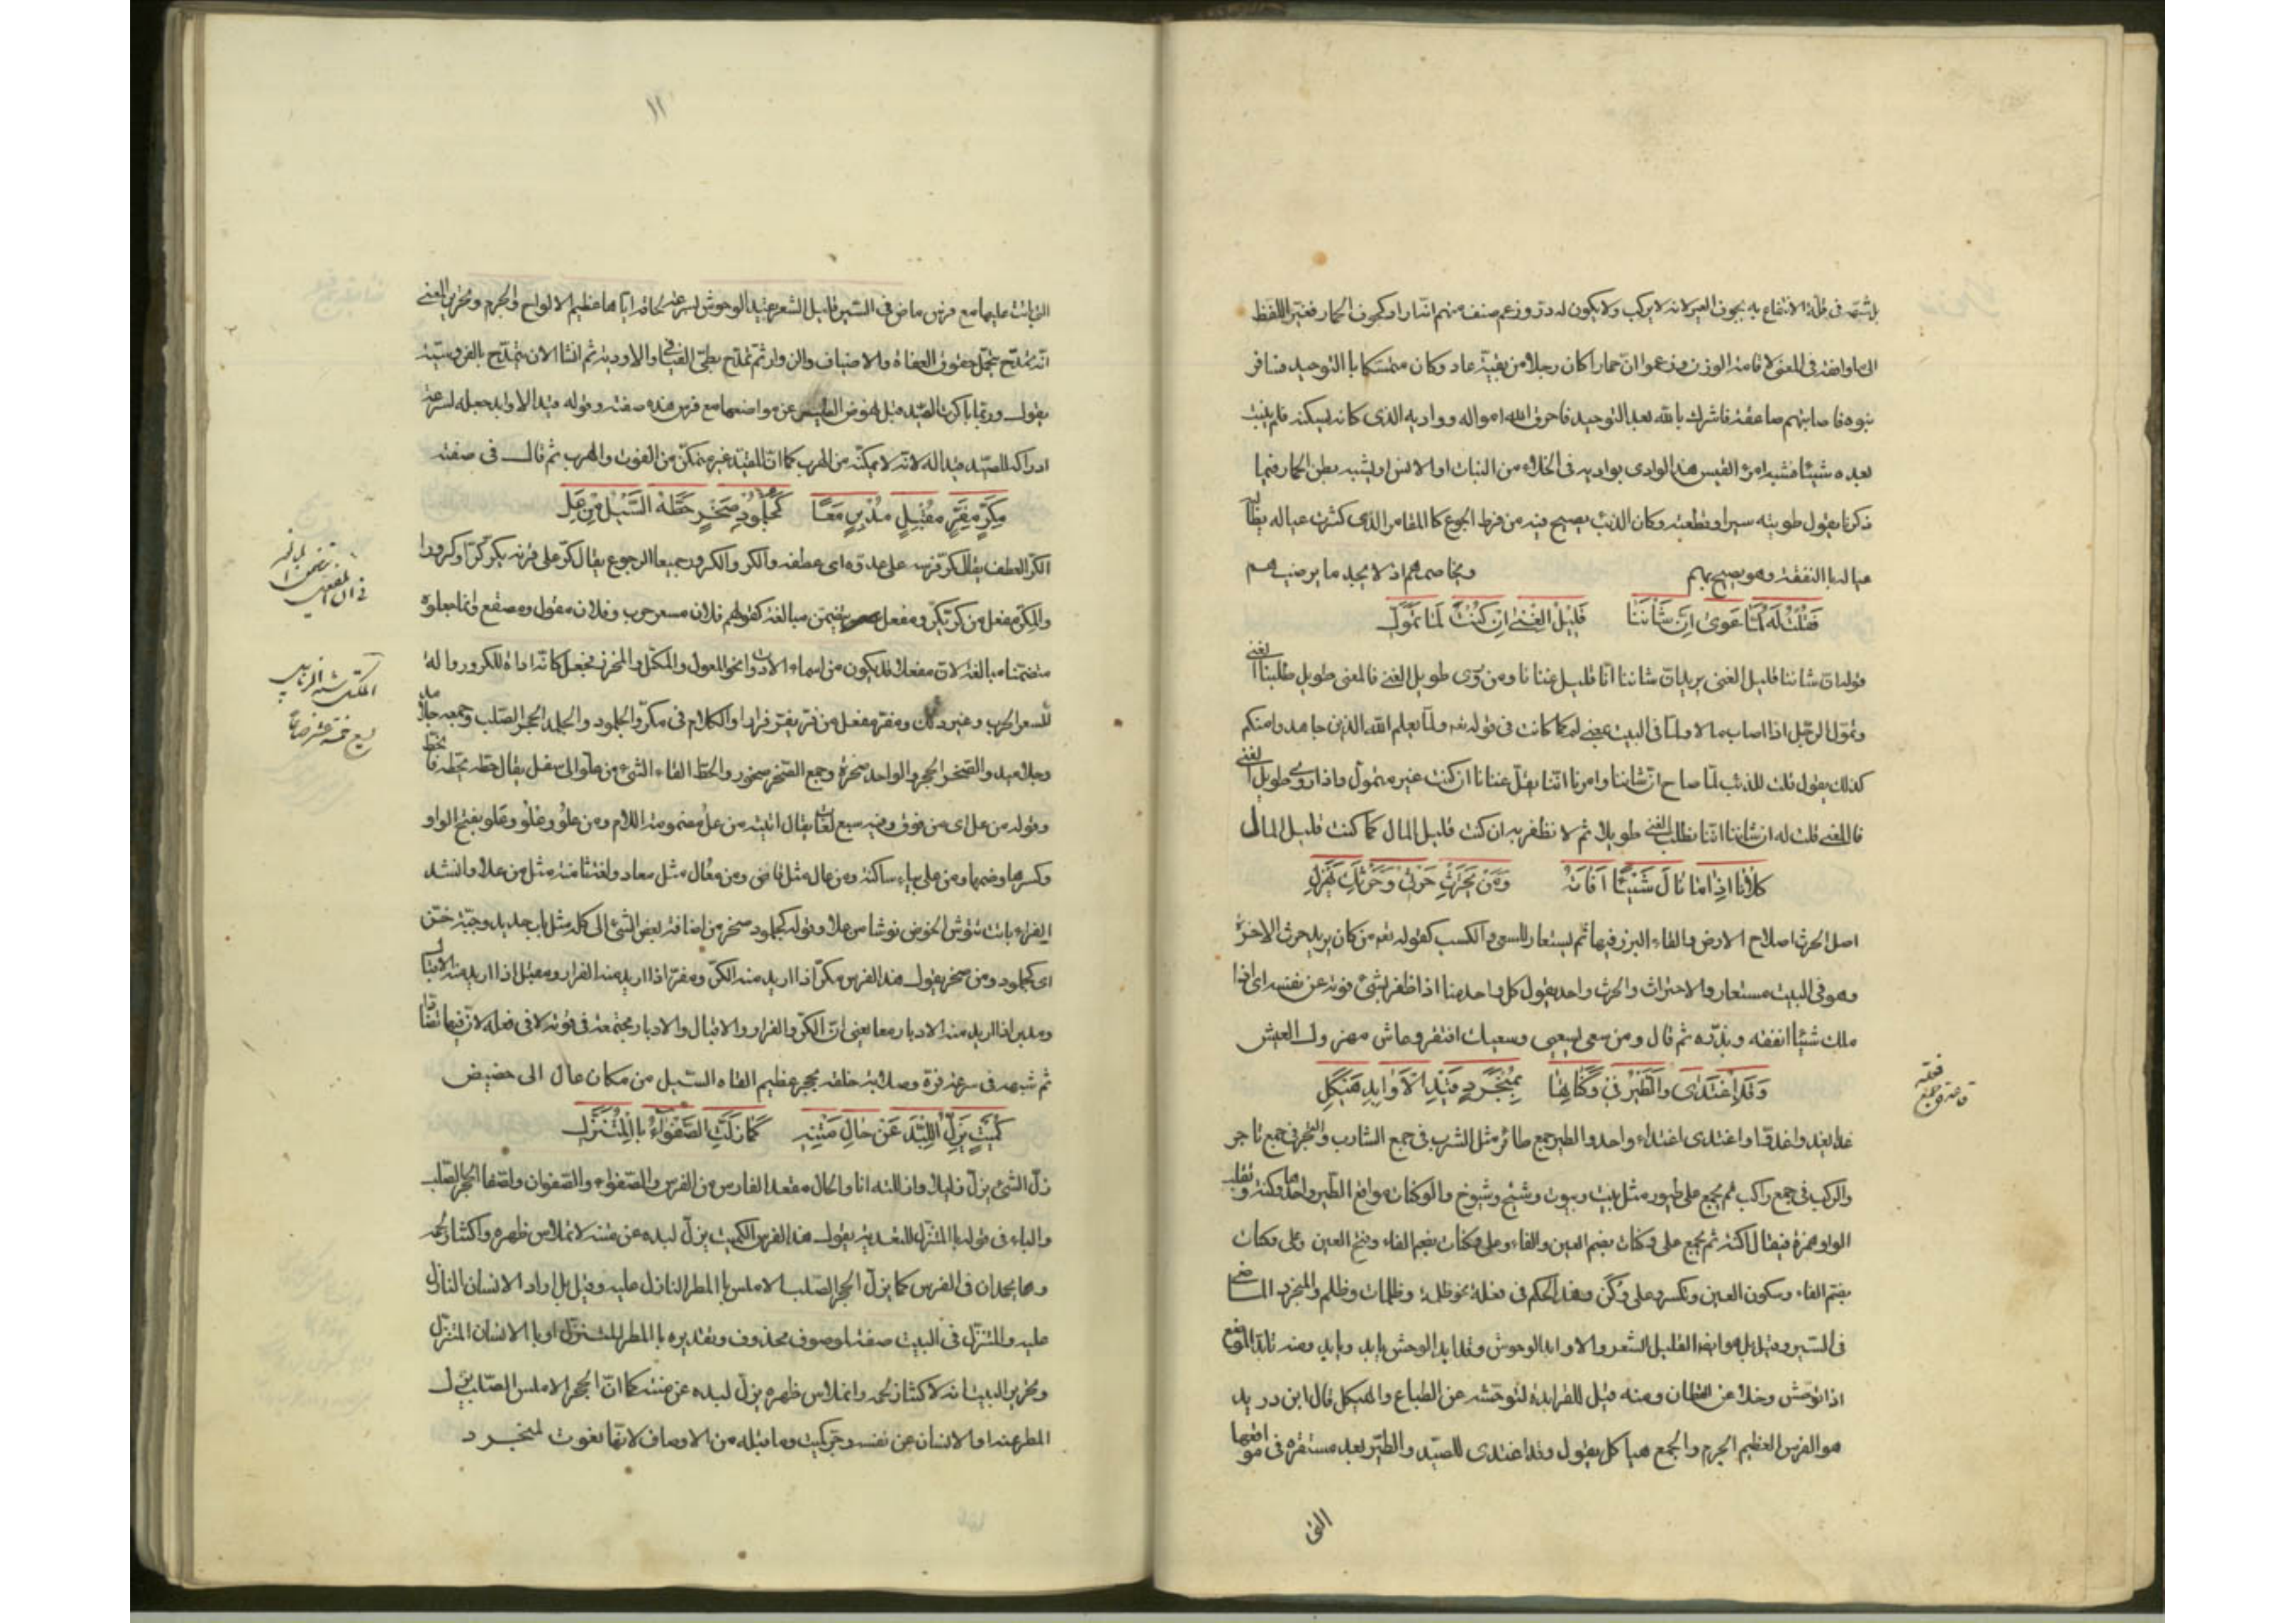 بل شبهه فى قلة الانتفاع به بجوف العير لانه لا يركب ولا يكون له در وزعم صنف منهم انه اراد كجوف الحمار فغير اللفظ
الى ما وافقه فى المعنى لاقامة الوزن وزعموا ان حمارا كان رجلا من بقية عاد وكان متمسكا بالتوحيد فسافر
بنوه فاصابتهم صاعقة فاشرك بالله بعد التوحيد فاحرق الله امواله وواديه الذى كان يسكنه فلم ينبت
بعده شيئا فشبه امرء القيس هذا الوادى بواديه فى الخلاء من النبات او الانس او يشبه بطن الحمار فيما
ذكرنا يقول طويته سيرا وقطعته وكان الذئب يصيح فيه من فرط الجوع كالمقامر الذى كثرت عياله يطالبه
عياله بالنفقة وهو يصيح بهم ويخاصمهم اذ لا يجد ما يرضيهم
فَقُلْتُ لَهُ لَمَّا عَوىٰ اِنَّ شَأنَنَا قَلِيْلُ الغِنىٰ اِنْ كُنْتَ لَمّا تَمَوَّلِ
قوله ان شاننا قليل الغنى يريد ان شاننا اننا قليل غنانا ومن روى طويل الغنى فالمعنى طويل طلبنا الغنى
وتمول الرجل اذا اصاب مالا ولما فى البيت بمعنى لم كما كانت فى قوله تعه ولما يعلم الله الذين جاهدوا منكم
كذلك يقول قلت للذئب لما صاح ان شاننا وامرنا اننا يقل غنانا ان كنت غير متمول واذا روى طويل الغنى
فالمعنى قلت له ان شاننا اننا نطلب الغنى طويلا ثم لا نظفر به ان كنت قليل المال كما كنت قليل المال
كِلَانَا اِذَا مَا نَالَ شَيْئًا اَفَاتَهُ وَمَنْ يَحْتَرِثْ حَرْثِىْ وَحَرْثَكَ يَهْزُلِ
اصل الحرث اصلاح الارض والقاء البزر فيها ثم يستعار للسعى والكسب كقوله تعه من كان يريد حرث الاخرة
وهو فى البيت مستعار والاحتراث والحرث واحد يقول كل واحد منا اذا ظفر بشئ فوته عن نفسه اى اذا
ملك شيئا انفقه وبذره ثم قال ومن سعى لسعيى وسعيك افتقر وعاش مهزول العيش
وَقَدْ اَغْتَدِىْ وَالطَّيْرُ فِىْ وُكُنَاتِهَا بِمُنْجَرِدٍ قَيْدِ الْاَوَابِدِ هَيْكَلِ
غدا يغدو غدوا واغتدى اغتداء واحد والطير جمع طائر مثل الشرب فى جمع الشارب والتجر فى جمع تاجر
والركب فى جمع راكب ثم يجمع على طيور مثل بيت وبيوت وشيخ وشيوخ والوكنات مواقع الطير واحدها وكنة وتقلب
الواو همزة فيقال اكنة ثم يجمع على وكنات بضم العين والفاء وعلى وكنات بضم الفاء وفتح العين وعلى وكنات
بضم الفاء وسكون العين وتكسر على وكن وهذا الحكم فى فعلة نحو ظلمة وظلمات وظلم والمنجرد الماضى
فى السير وقيل بل هو ايضا القليل الشعر والاوابد الوحوش وقد ابد الوحش يابد ويابد ومنه تابد الموضع
اذا توحش وخلا عن القطان ومنه قيل للفرابدة لتوحشه عن الطباع والهيكل قال ابن دريد
هو الفرس العظيم الجرم والجمع هياكل يقول وقد اغتدى للصيد والطير بعد مستقرة فى مواقعها
التى
فعلة
١١
التى باتت عليها مع فرس ماض فى السير قليل الشعر يقيد الوحوش لسرعة لحاقه اياها عظيم الالواح والجرم وتحرير المعنى
انه تمدح بتحمل حقوق العفاة والاضياف والزوار ثم تمدح بطى الفيافى والاودية ثم انشا الان يتمدح بالفروسية
يقول وربما باكرت الصيد قبل نهوض الطير عن مواضعها مع فرس هذه صفته وقوله قيد الاوابد جعله لسرعة
ادراكه الصيد قيدا له لانه لا يمكنه من الهرب كما ان المقيد غير متمكن من الفوت والهرب ثم قال فى صفته
مِكَرٍّ مِفَرٍّ مُقْبِلٍ مُدْبِرٍ مَعًا كَجُلْمُوْدِ صَخْرٍ حَطَّهُ السَّيْلُ مِنْ عَلِ
الكر العطف يقال كر فرسه على عدوه اى عطفه والكر والكرور جميعا الرجوع يقال كر على قرنه يكر كرا وكرورا
والمكر مفعل من كر يكر ومفعل يتضمن مبالغة كقولهم فلان مسعر حرب وفلان مقول ومصقع وانما جعلوه
متضمنا مبالغة لان مفعلا قد يكون من اسماء الادات نحو المعول والمكتل والمخرز فجعل كانه اداة للكرور والة
لسعر الحرب وغير ذلك ومفر مفعل من فر يفر فرارا والكلام فى مكر والجلمود والجلمد الحجر الصلب وجمعه جلامد
وجلاميد والصخر الحجر والواحد صخرة وجمع الصخر صخور والحط القاء الشئ من علو الى سفل يقال حطه يحطه فانحط
وقوله من عل اى من فوق وفيه سبع لغات يقال اتيته من عل مضمومة اللام ومن علو وعلو وعلو بفتح الواو
وكسرها وضمها ومن على بياء ساكنة ومن عال مثل قاض ومن معال مثل معاد ولغة ثامنة مثل من علا وانشد
الفراء باتت تنوش الحوض نوشا من علا وقوله كجلمود صخر من اضافة بعض الشئ الى كله مثل باب حديد وجبة خز
اى كجلمود ومن صخر يقول هذا الفرس مكر اذا اريد منه الكر ومفر اذا اريد منه الفرار ومقبل اذا اريد منه الاقبال
ومدبر اذا اريد منه الادبار ومعا يعنى ان الكر والفرار والاقبال والادبار مجتمعة فى قوته لا فى فعله لان فيها تضادا
ثم شبهه فى سرعة مره وصلابة خلقه بحجر عظيم القاه السيل من مكان عال الى حضيض
كُمَيْتٍ يَزِلُّ اللِّبْدُ عَنْ حَالِ مَتْنِهِ كَمَا زَلَّتِ الصَّفْوَآءُ بِالْمُتَنَزِّلِ
زل الشئ يزل زليلا وازللته انا والحال مقعد الفارس من الفرس والصفواء والصفوان والصفا الحجر الصلب
والباء فى قوله بالمتنزل للتعدية يقول هذا الفرس الكميت يزل لبده عن متنه لانملاس ظهره واكتناز لحمه
وهما يحمدان فى الفرس كما يزل الحجر الصلب الاملس بالمطر النازل عليه وقيل بل اراد الانسان النازل
عليه والمتنزل فى البيت صفة لموصوف محذوف وتقديره بالمطر المتنزل او بالانسان المتنزل
وتحرير البيت انه لاكتناز لحمه وانملاس ظهره يزل لبده عن متنه كما ان الحجر الاملس الصلب يزل
المطر عنه او الانسان عن نفسه وجر كميت وما قبله من الاوصاف لانها نعوت لمنجرد
المكتل شبه الزنبيل
يسع خمسة عشر صاعا